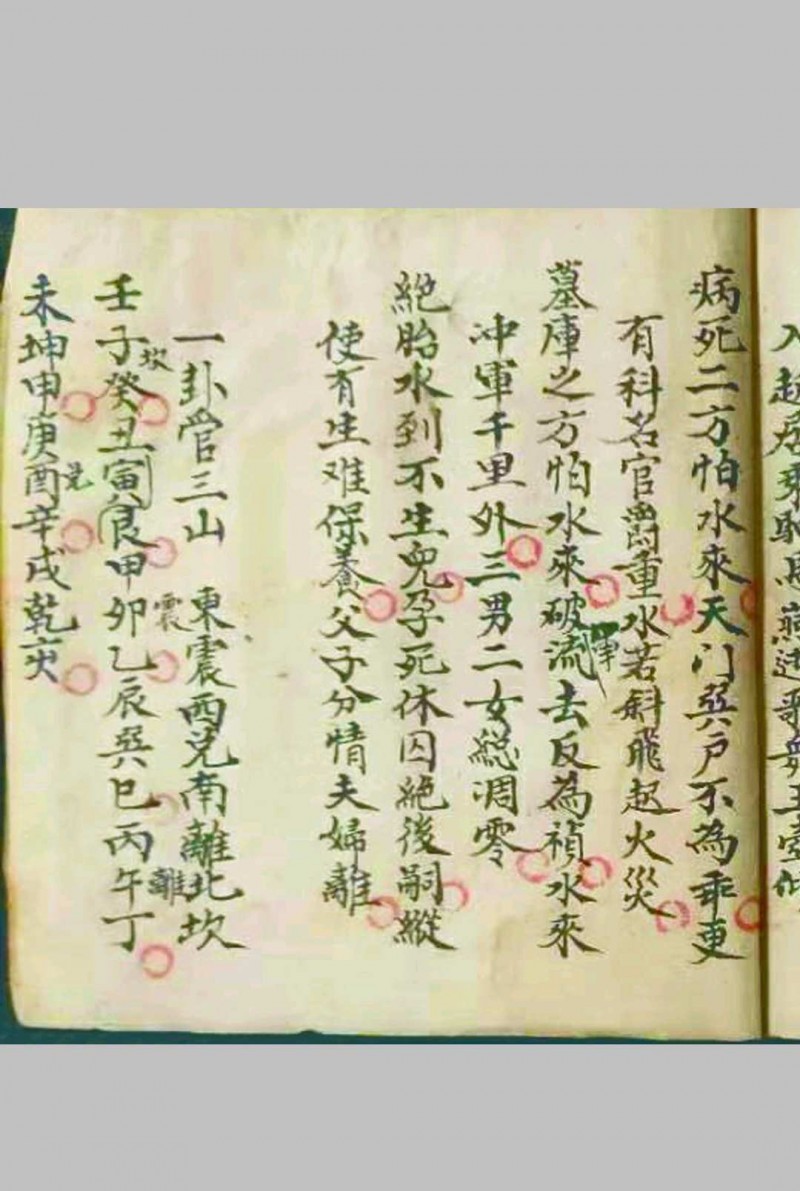 病死二方怕水來天门巽戶不為乖更
有科名官爵重水若斜飛起火災
墓庫之方怕水來破流去反為禎水來
冲軍千里外三男二女總凋零
絕胎水到不生兒孕死休囚絕後嗣縱
使有生难保養父子分情夫婦離
一卦管三山 東震西兌南離北坎
壬子坎癸丑寅艮甲卯震乙辰巽巳丙午離丁
未坤申庚酉兑辛戍乾亥